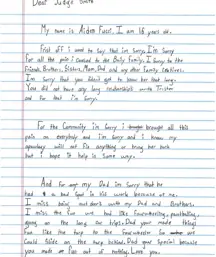 Dear Judge Smith
My name is Aiden Fucci. I am 16 years old.
First off I want to say that im Sorry. I'm Sorry
For all the pain I caused to the Baily Family. I Sorry to the
Friends, Brothers, Sisters, Mom, Dad and any other Family relatives.
I'm Sorry that you didn't get to know her that long.
You did not have any long relationship with Tristyn
and for that im Sorry.
For the Community im Sorry I brought all this
pain on everyone and im Sorry and i know my
apology will not fix anything or bring her back
but i hope it help in some way.
And for my Dad im Sorry that he
had a bad in his work because of me.
I miss being outdoors with my Dad and Brothers.
I miss the fun we had like Four-wheeling, paintballing,
going on the long car trips. Dad your made things
fun like the tarp to the fourwheeler so we
Could Slide on the tarp behind. Dad your Special because
you made fun out of nothing. Love you.